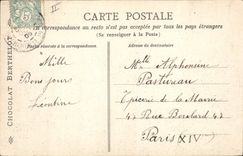 II
CARTE POSTALE
La correspondance au recto n'est pas acceptée par tous les pays étrangers
(Se renseigner à la Poste)
Partie réservée à la correspondance.
Adresse du destinataire
CHOCOLAT BERTHELOT
Mille
Bons jours
Mlle Alphonsine
Pastureau
Epicerie de la Mairie
42 Rue Boulard 42
Paris (XIV)